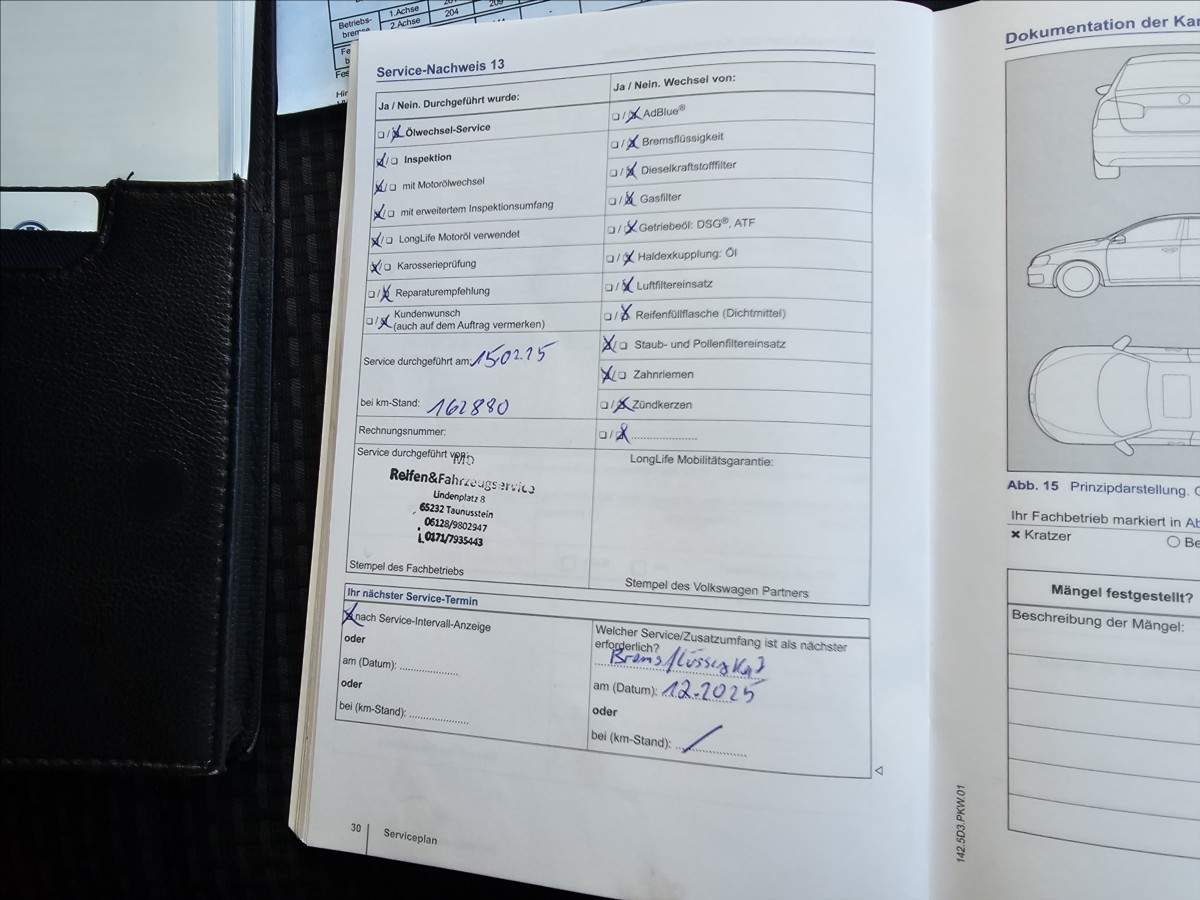 Betriebs-
1.Achse
2.Achse
204
Service-Nachweis 13
Ja / Nein. Durchgeführt wurde:
Ölwechsel-Service
Inspektion
mit Motorölwechsel
mit erweitertem Inspektionsumfang
LongLife Motoröl verwendet
Karosserieprüfung
Reparaturempfehlung
Kundenwunsch
(auch auf dem Auftrag vermerken)
Service durchgeführt am: 150225
bei km-Stand: 162880
Rechnungsnummer:
Service durchgeführt von:
Reifen&Fahrzeugservice
Lindenplatz 8
65232 Taunusstein
06128/9802947
0171/7935443
Stempel des Fachbetriebs
Ja / Nein. Wechsel von:
AdBlue®
Bremsflüssigkeit
Dieselkraftstofffilter
Gasfilter
Getriebeöl: DSG®, ATF
Haldexkupplung: Öl
Luftfiltereinsatz
Reifenfüllflasche (Dichtmittel)
Staub- und Pollenfiltereinsatz
Zahnriemen
Zündkerzen
LongLife Mobilitätsgarantie:
Stempel des Volkswagen Partners
Ihr nächster Service-Termin
nach Service-Intervall-Anzeige
oder
am (Datum):
oder
bei (km-Stand):
Welcher Service/Zusatzumfang ist als nächster
erforderlich?
Bremsflüssigkeit
am (Datum): 12.2025
oder
bei (km-Stand): /
30 Serviceplan
142.5D3.PKW.01
Dokumentation der Kar
Abb. 15 Prinzipdarstellung.
Ihr Fachbetrieb markiert in Ab
Kratzer
Be
Mängel festgestellt?
Beschreibung der Mängel: